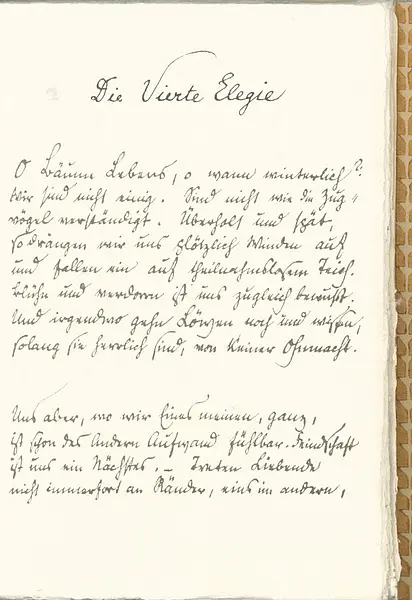 Die Vierte Elegie
O Bäume Lebens, o wann winterlich?
Wir sind nicht einig. Sind nicht wie die Zug-
vögel verständigt. Überholt und spät,
so drängen wir uns plötzlich Winden auf
und fallen ein auf theilnahmslosen Teich.
Blühn und verdorrn ist uns zugleich bewußt.
Und irgendwo gehn Löwen noch und wissen,
solang sie herrlich sind, von keiner Ohnmacht.
Uns aber, wo wir Eines meinen, ganz,
ist schon des Andern Aufwand fühlbar. Feindschaft
ist uns ein Nächstes. – Treten Liebende
nicht immerfort an Ränder, eins im andern,